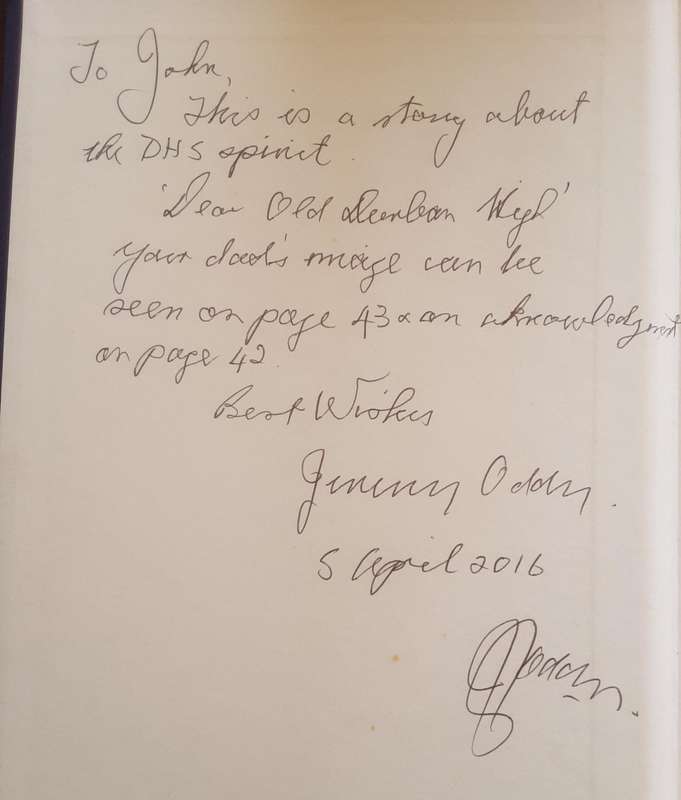 To John,
This is a story about
the DHS spirit.
'Dear Old Durban High'
Your dad's image can be
seen on page 43 & an acknowledgment
on page 42
Best Wishes
Jeremy Oddy.
5 April 2016
Oddy.